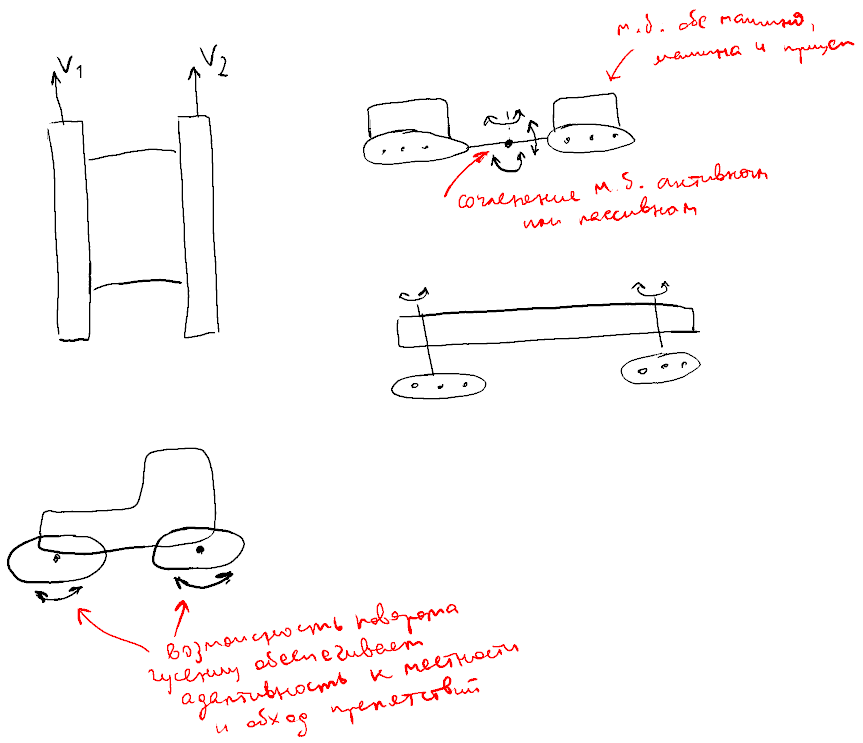 V₁
V₂
м.б. обе машины,
машина и прицеп
сочленение м.б. активном
или пассивном
возможность поворота
гусениц обеспечивает
адаптивность к местности
и обход препятствий